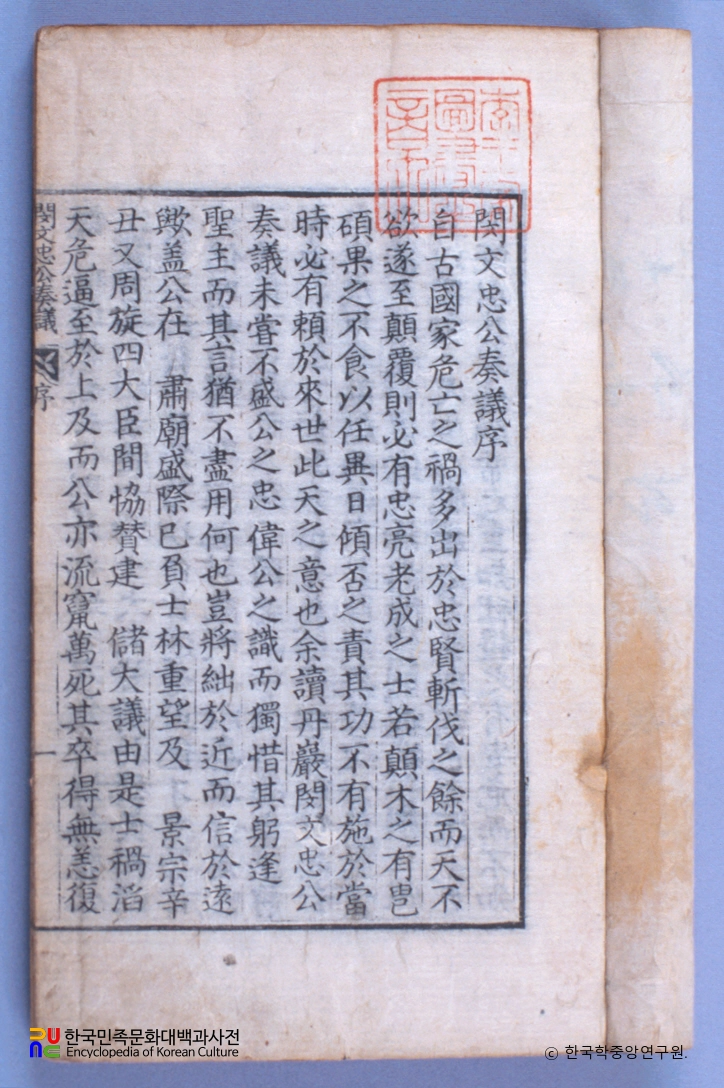 李王家
圖書之
閔文忠公奏議序
自古國家危亡之禍多出於忠賢斬伐之餘而天不
欲遂至顛覆則必有忠亮老成之士若顛木之有
碩果之不食以任異日傾否之責其功不有施於當
時必有賴於來世此天之意也余讀丹巖閔文忠公
奏議未嘗不盛公之忠偉公之識而獨惜其躬逢
聖主而其言猶不盡用何也豈將絀於近而信於遠
歟盖公在 肅廟盛際已負士林重望及 景宗辛
丑又周旋四大臣間恊賛建 儲大議由是士禍滔
天危逼至於上及而公亦流竄萬死其卒得無恙復
閔文忠公奏議 序 一
한국민족문화대백과사전
Encyclopedia of Korean Culture
ⓒ 한국학중앙연구원.